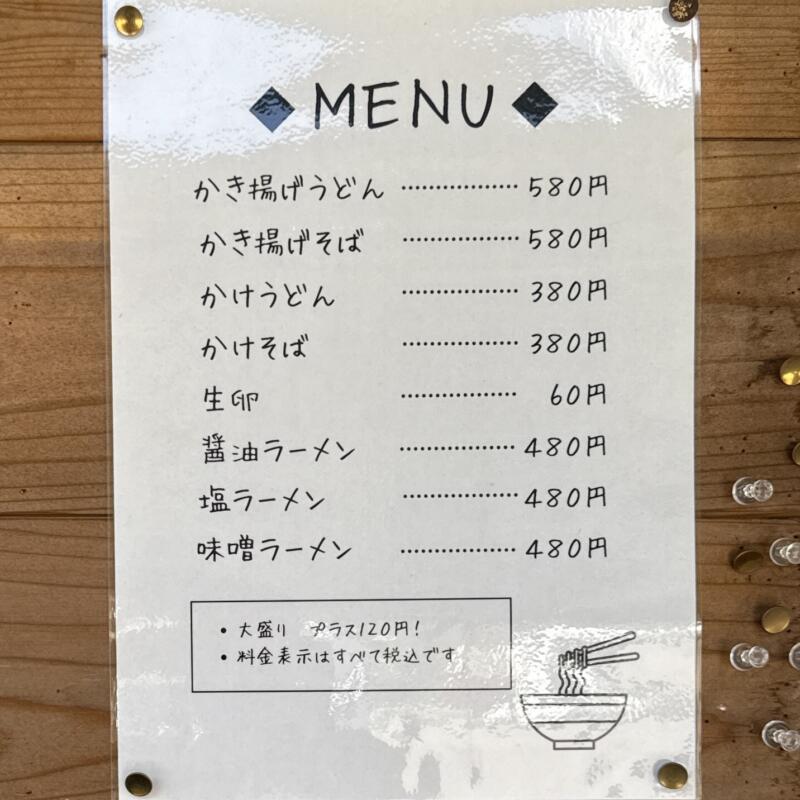 ◆MENU◆
かき揚げうどん ……………… 580円
かき揚げそば ……………… 580円
かけうどん ……………… 380円
かけそば ……………… 380円
生卵 ……………… 60円
醤油ラーメン ……………… 480円
塩ラーメン ……………… 480円
味噌ラーメン ……………… 480円
・大盛り プラス120円!
・料金表示はすべて税込です